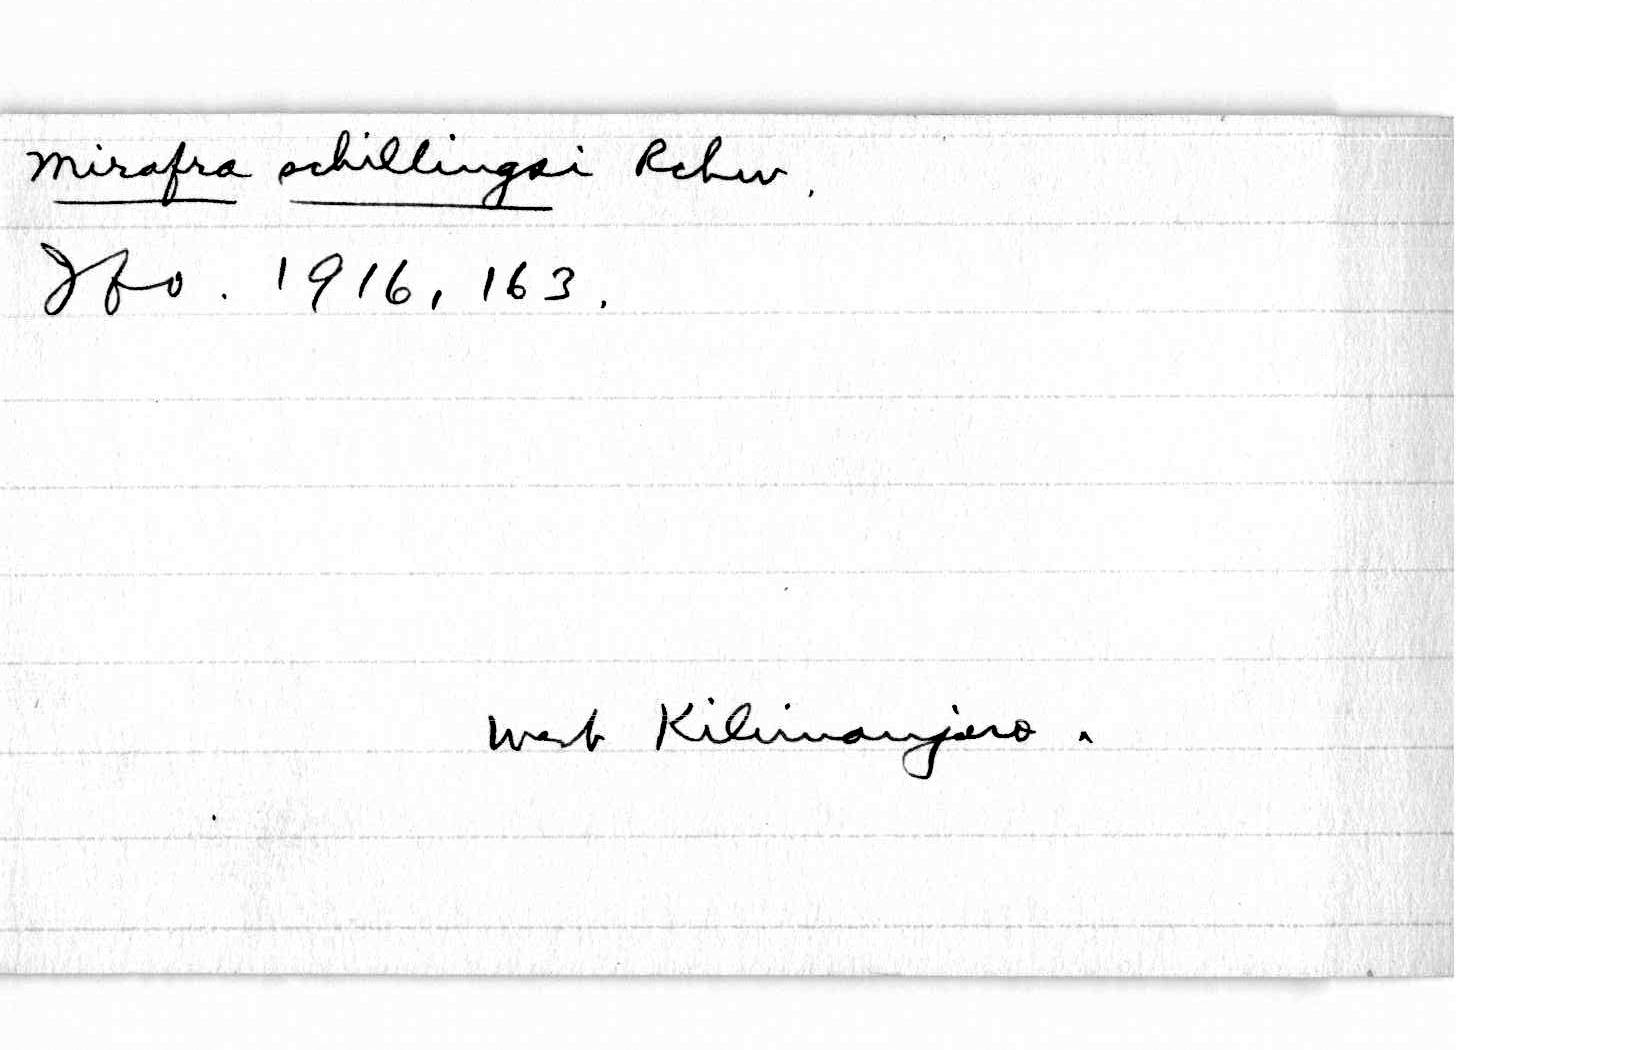 Mirafra schillingsi Rchw.
Jfo. 1916, 163.
West Kilimanjaro.